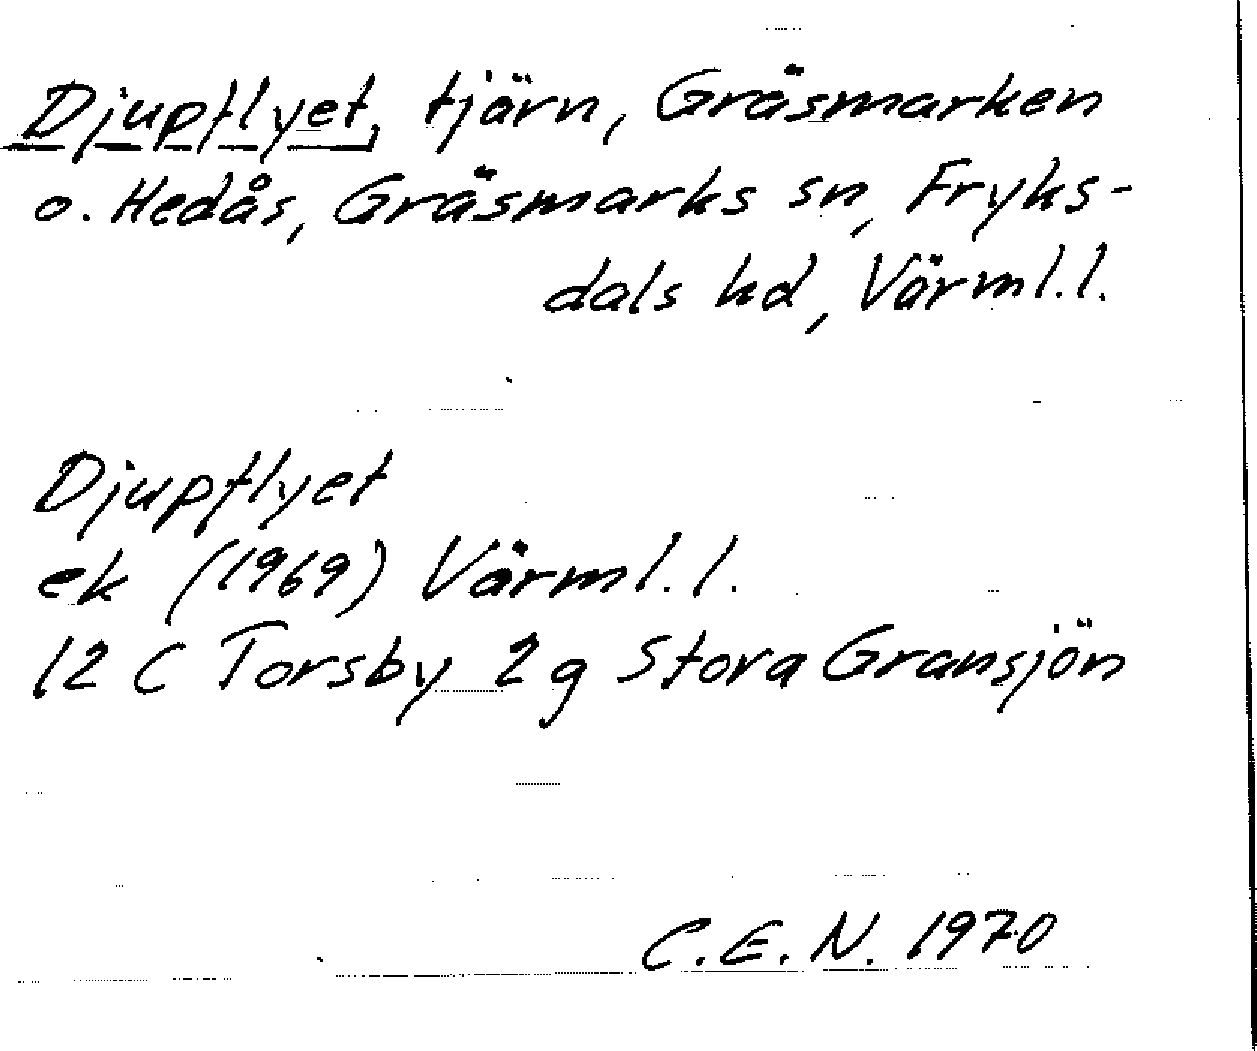 Djupflyet, tjärn, Gräsmarken
o. Hedås, Gräsmarks sn, Fryks-
dals hd, Värml.l.
Djupflyet
ek (1969) Värml.l.
12 C Torsby 2g Stora Gransjön
C.E.N. 1970